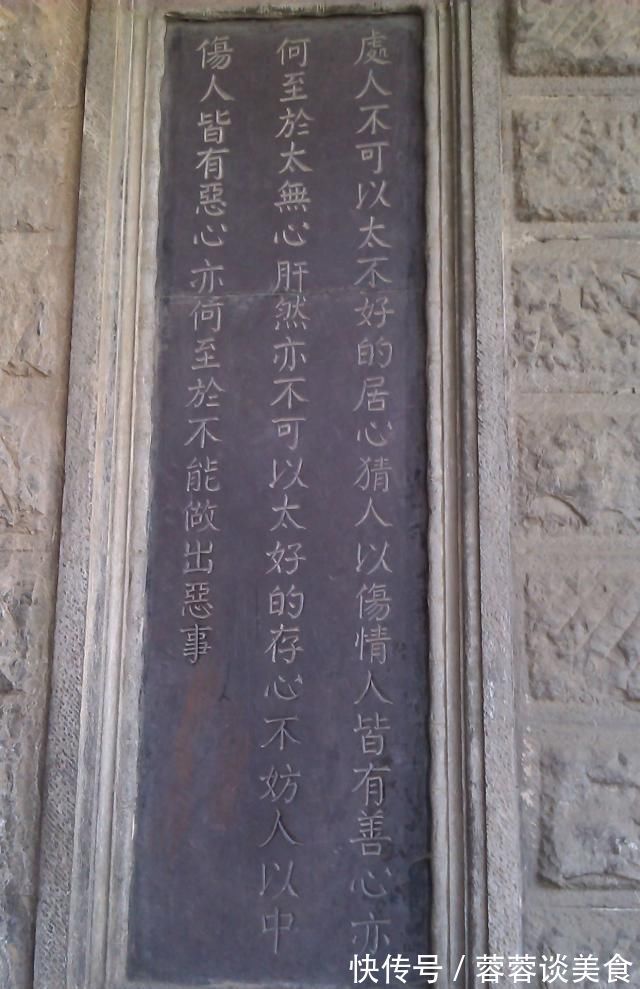 處人不可以太不好的居心猜人以傷情人皆有善心亦
何至於太無心肝然亦不可以太好的存心不妨人以中
傷人皆有惡心亦何至於不能做出惡事
快传号/蓉蓉谈美食